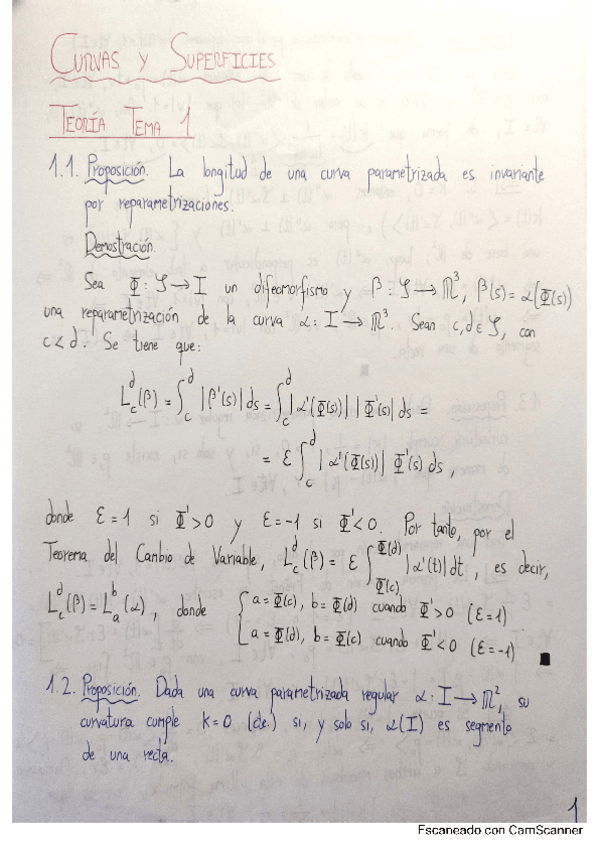 CURVAS Y SUPERFICIES
TEORÍA TEMA 1
1.1. Proposición. La longitud de una curva parametrizada es invariante
por reparametrizaciones.
Demostración.
Sea Φ: J → I un difeomorfismo y β: J → ℝ³, β(s) = α(Φ(s))
una reparametrización de la curva α: I → ℝ³. Sean c,d ∈ J, con
c < d. Se tiene que:
L_c^d(β) = ∫_c^d |β'(s)| ds = ∫_c^d |α'(Φ(s))| |Φ'(s)| ds =
= ε ∫_c^d |α'(Φ(s))| Φ'(s) ds,
donde ε = 1 si Φ' > 0 y ε = -1 si Φ' < 0. Por tanto, por el
Teorema del Cambio de Variable, L_c^d(β) = ε ∫_{Φ(c)}^{Φ(d)} |α'(t)| dt, es decir,
L_c^d(β) = L_a^b(α), donde { a = Φ(c), b = Φ(d) cuando Φ' > 0 (ε = 1)
a = Φ(d), b = Φ(c) cuando Φ' < 0 (ε = -1)
1.2. Proposición. Dada una curva parametrizada regular α: I → ℝ², su
curvatura cumple k = 0 (cte.) si, y solo si, α(I) es segmento
de una recta.
1
Escaneado con CamScanner